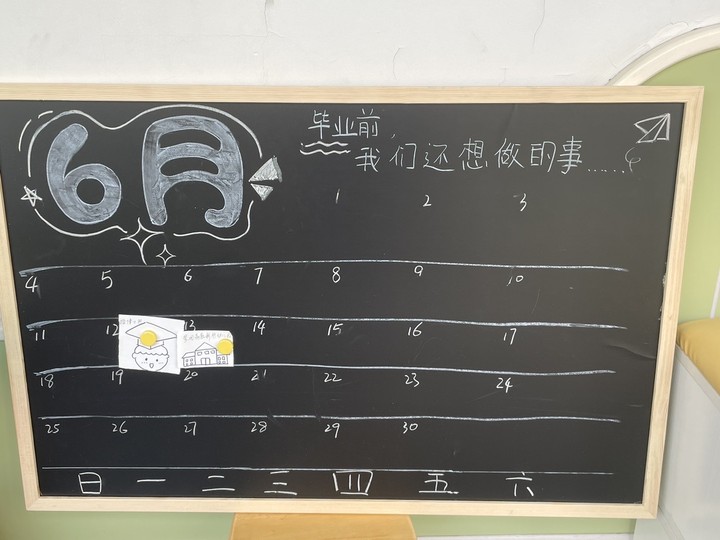 6月
毕业前,
我们还想做的事......
1 2 3
4 5 6 7 8 9 10
11 12 13 14 15 16 17
18 19 20 21 22 23 24
25 26 27 28 29 30
日 一 二 三 四 五 六